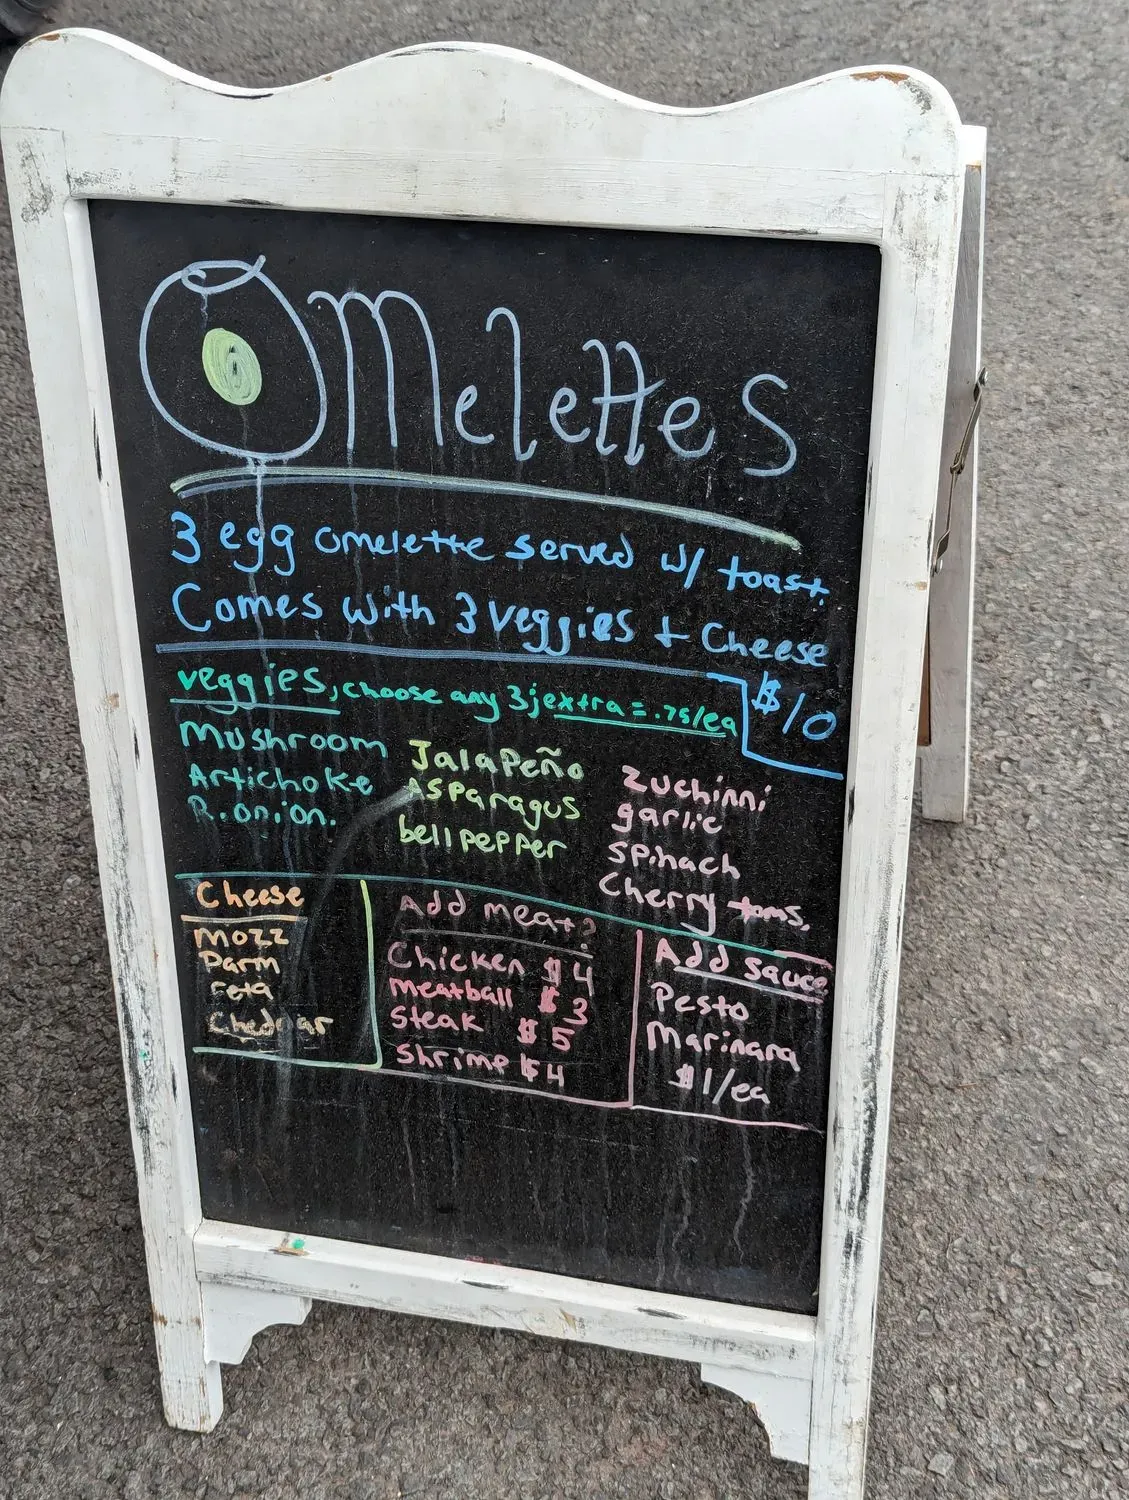 Omelettes
3 egg omelette served w/ toast.
Comes with 3 veggies + Cheese
$10
veggies, choose any 3; extra = .75/ea
Mushroom
Artichoke
R. onion.
Jalapeño
Asparagus
bell pepper
Zuchinni
garlic
spinach
Cherry toms.
Cheese
Mozz
Parm
feta
Cheddar
Add meat?
Chicken $4
meatball $3
steak $5
shrimp $4
Add sauce
Pesto
Marinara
$1/ea